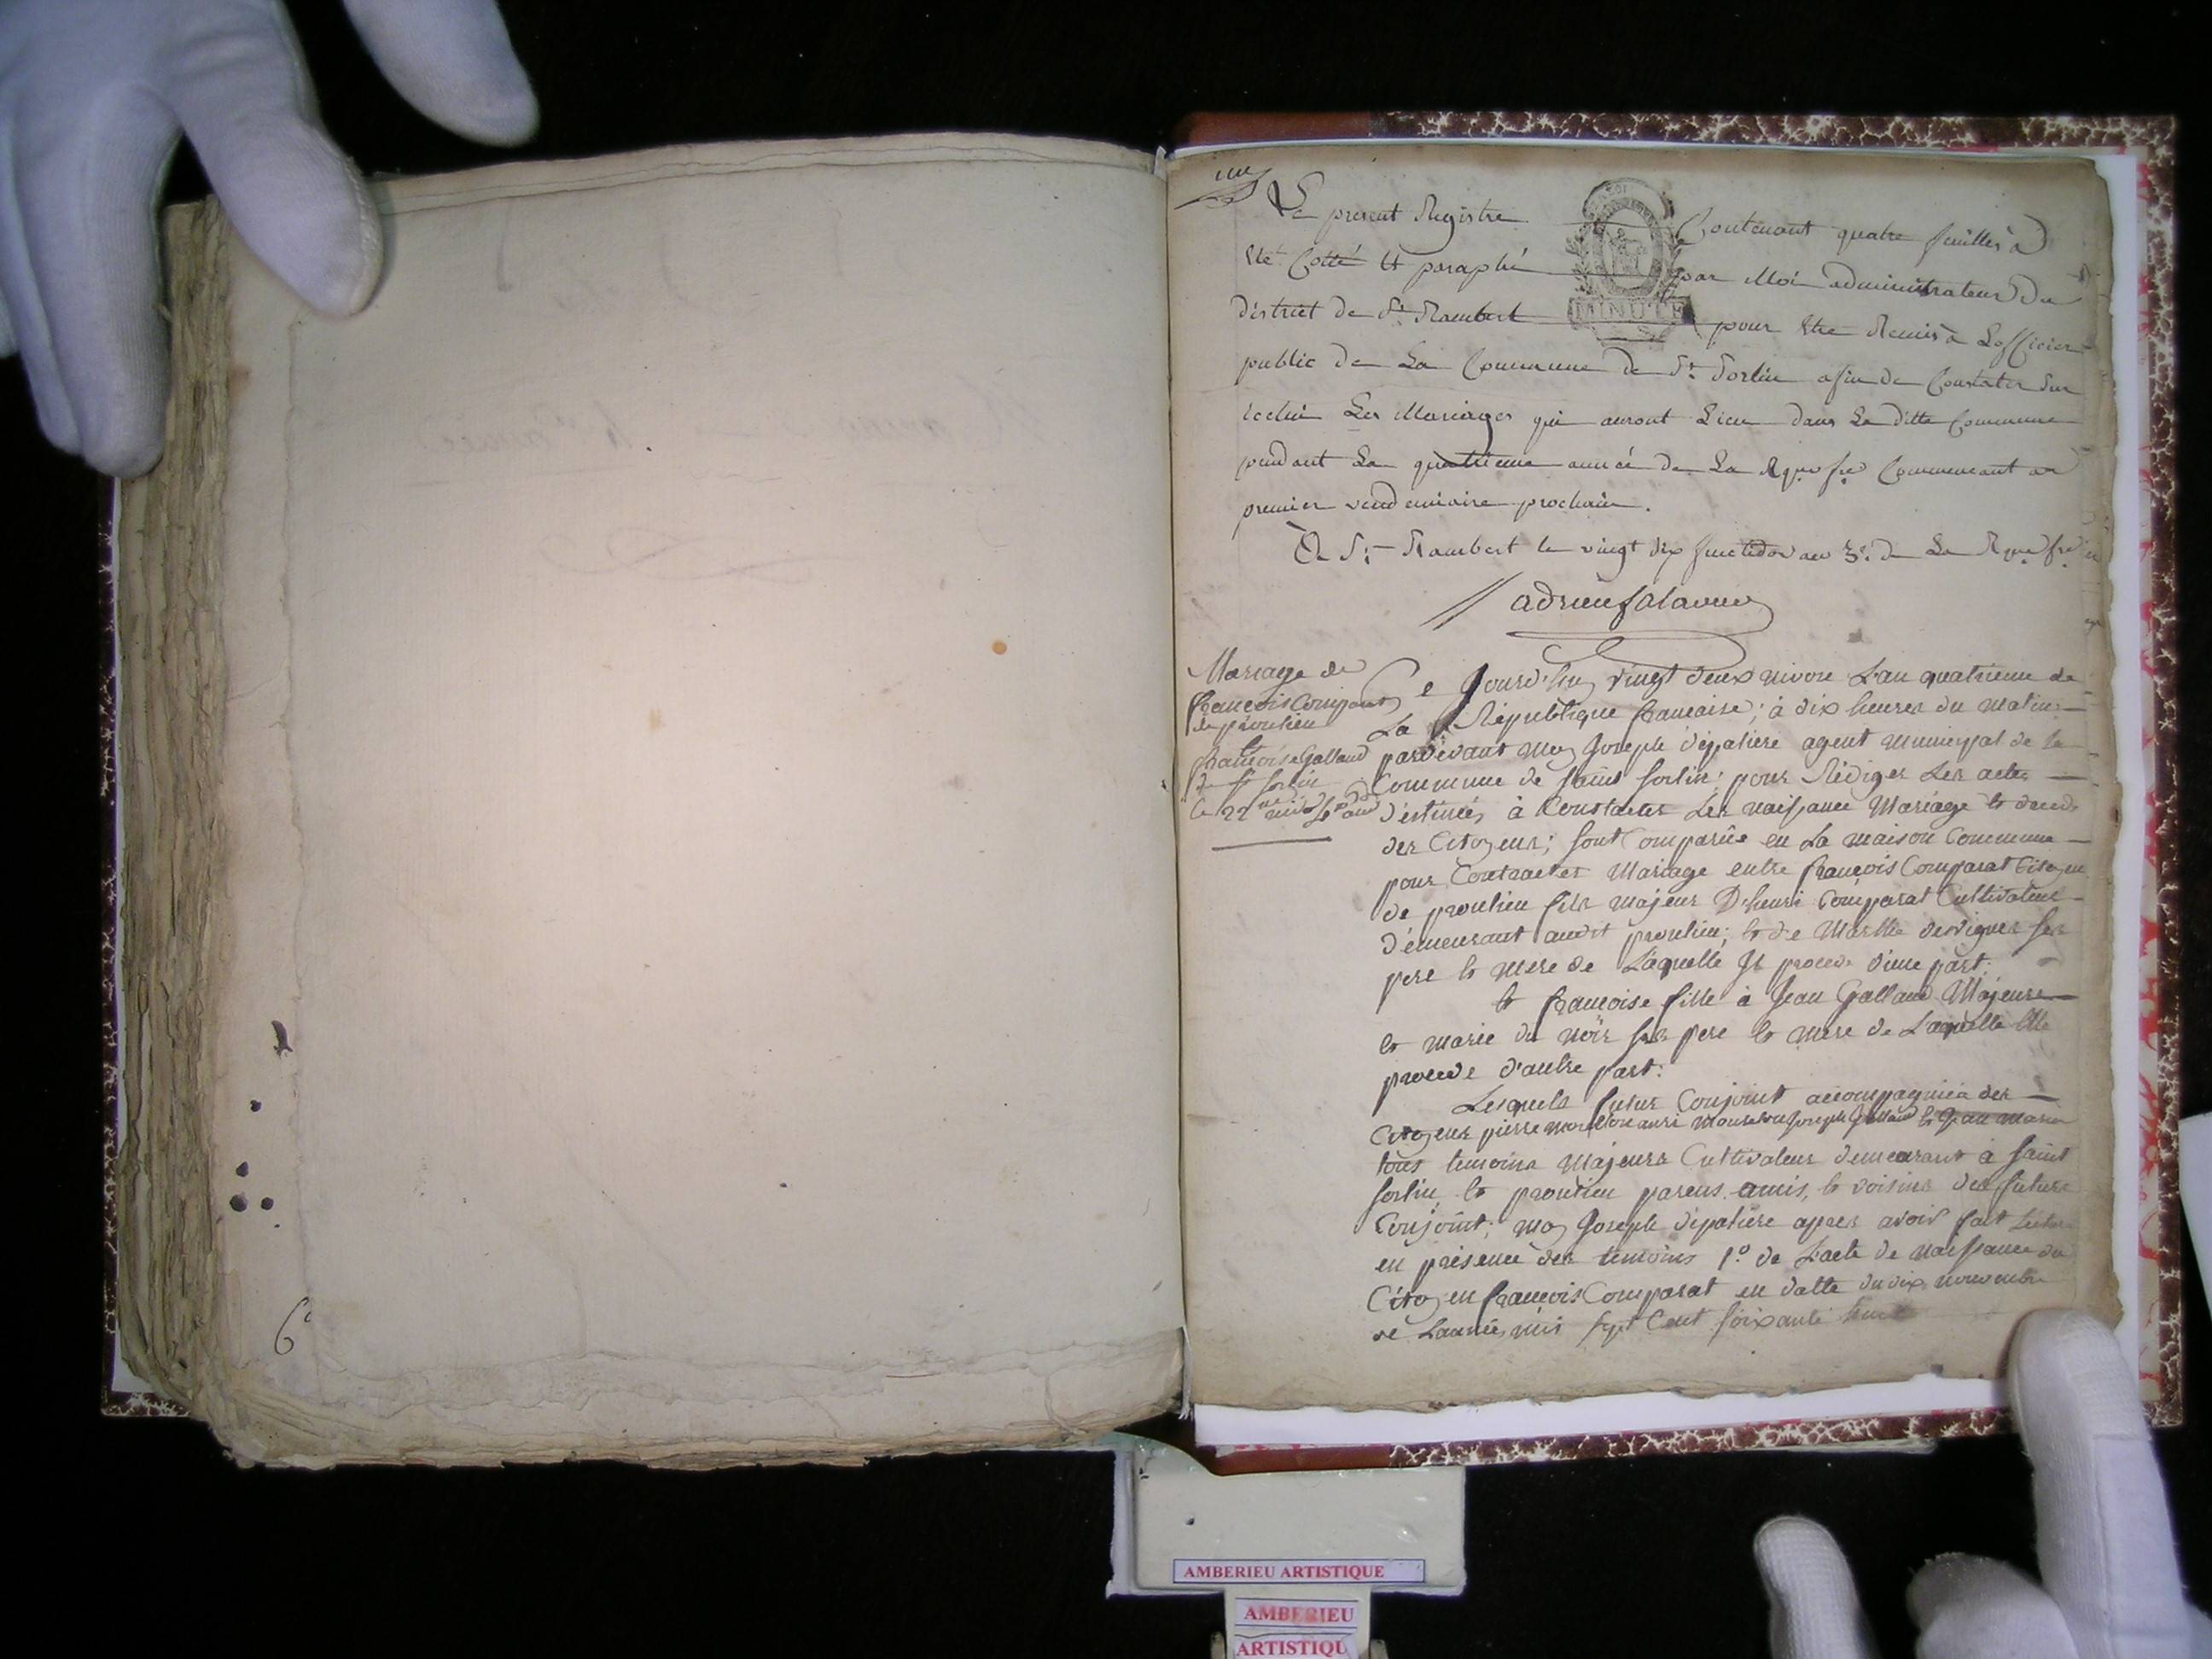 Le present Registre Contenant quatre feuilles a
Eté Cotté Et paraphé par Moi administrateur Du
MINUTE
district de St Rambert pour Etre Remis à Lofficier
public de La Commune de St Sorlin afin de Constater Sur
icelui Les Mariages qui auront Lieu dans La ditte Commune
pendant La quatrieme année de La Rque fse Commencant au
premier vendemiaire prochain.
A St Rambert le vingt dix fructidor an 3e de La Rque fse
Mariage de
francois Comparat
de proulieu
et
francoise Galland
de St Sorlin
le 22 nivose
Ce Jourd'huy vingt deux nivose L'an quatrieme de
La République francaise; à dix heures du matin
pardevant moy Joseph dépalière agent municipal de la
Commune de saint sorlin; pour Rédiger Les actes
d'estinés à Constater Les naissance Mariage et deces
des Citoyens; sont Comparûs en La maison Commune
pour Contracter Mariage entre francois Comparat Citoyen
de proulieu fils majeur D'henri Comparat Cultivateur
d'émeurant audit proulieu; et de Marthe desvignes ses
pere et mere de Laquelle Il procede d'une part;
et francoise fille à Jean Galland Majeure
et marie du noir ses pere et mere de Laquelle Elle
procede d'autre part:
Lesquels futur Conjoint accompagniés des
Citoyens pierre Joseph Galland et Jean marie
tous temoins Majeurs Cultivateur demeurant à saint
sorlin et proulieu parens, amis, et voisins des futurs
Conjoint; moy Joseph dépalière apres avoir fait
en présence des temoins 1º de L'acte de naissance du
Citoyen francois Comparat en datte du dix novembre
de Lannée mis sept Cent soixante
6e
AMBERIEU ARTISTIQUE
AMBERIEU
ARTISTIQU